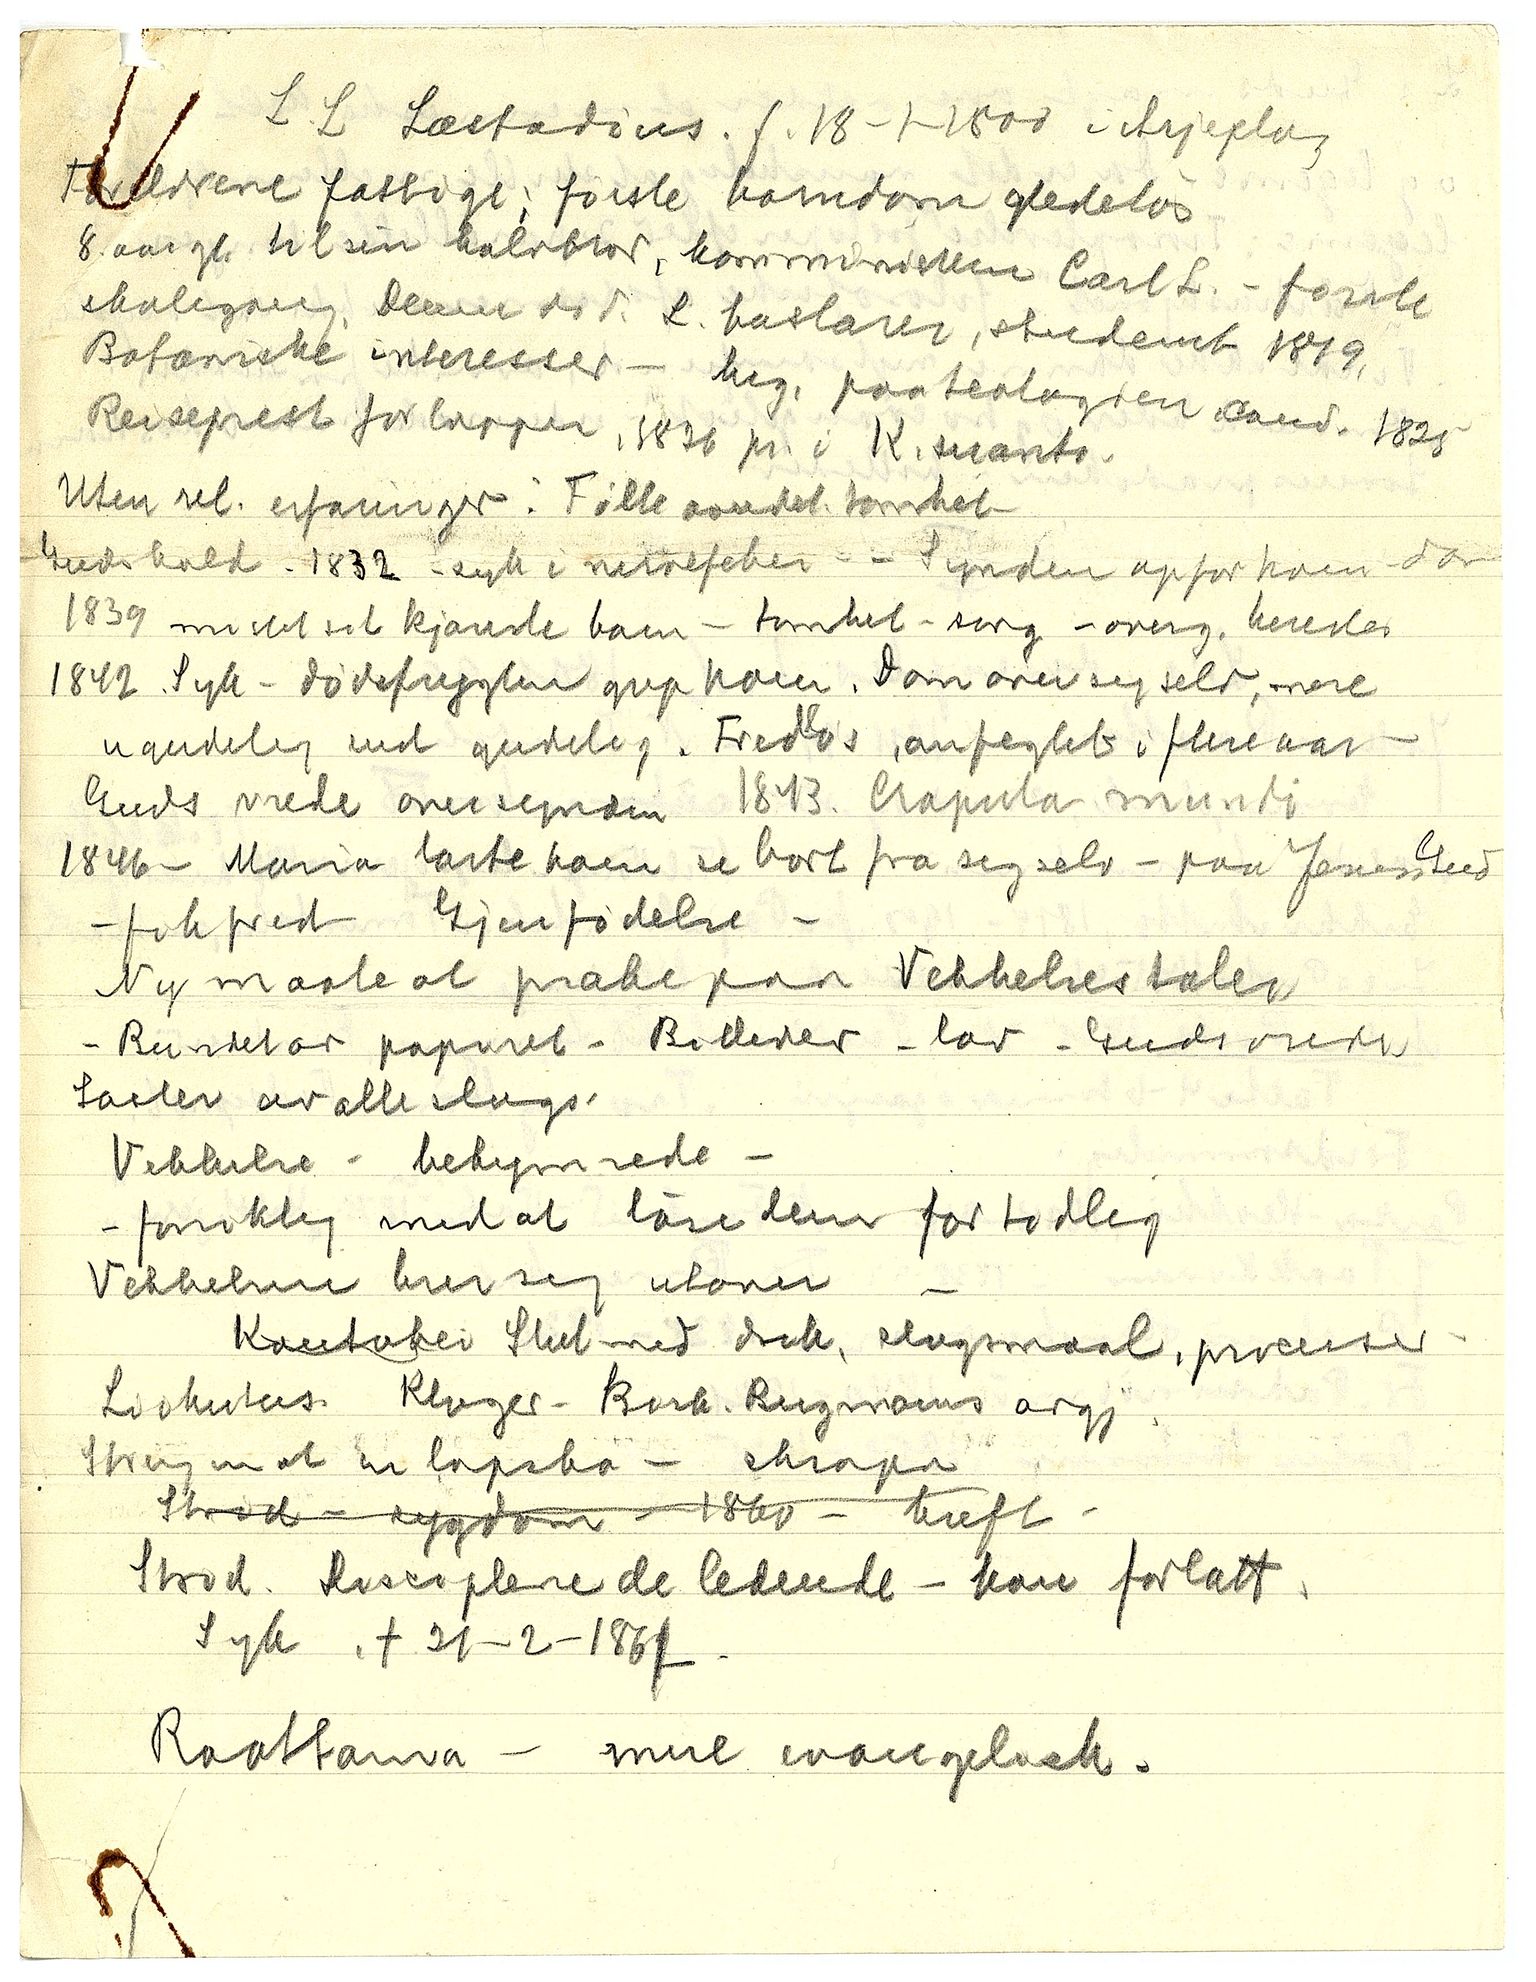 L. L Læstadius. f. 18-1-1800 i Arjeplog
Foreldrene fattige; første barndom gledeløs
8. aar gl. til sin halvbror, komministeren Carl L. - første
skolegang. Denne død. L. kostarer, student 1819,
Botaniske interesser - beg. paa teologien cand. 1825
Reiseprest for lapper, 1826 pr. i K. suanto.
Uten rel. erfaringer: Følte aandel. tomhet
Gudshold - 1832 - syk i nervefeber - - Synden opfor ham - dom
1839 mistet sit kjæreste barn - tomhet - sorg - overg. bereder
1842. Syk - dødsfrygten grep ham. Dom over seg selv, mere
ugudelig end gudelig. Fredløs, anfegtet i flere aar -
Guds vrede over synden 1843. Crapula mundi
1846 - Maria lærte ham se bort fra seg selv - paa Jesus, Gud
- fik fred Gjenfødelse -
Ny maate at preke paa Vekkelsestaler
- Bundet av papiret - Billeder - lov - Guds vrede
Laster av alle slags.
Vekkelse - bekymrede -
- forsiktig med at løse dem for tidlig
Vekkelsen brer seg utover -
Kautokei Slut med drik, slagsmaal, processer -
Lovkutus. Klager - Bork. Ruymanns argj.
Streng mot - skrapa
Strid - sygdom - 1860 - kreft -
Strid. Disciplene de ledende - han forlatt.
Syk. † 21-2-1861.
Raattama - mere evangelisk.